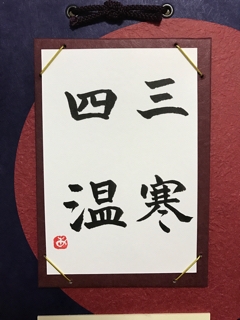 三寒
四温